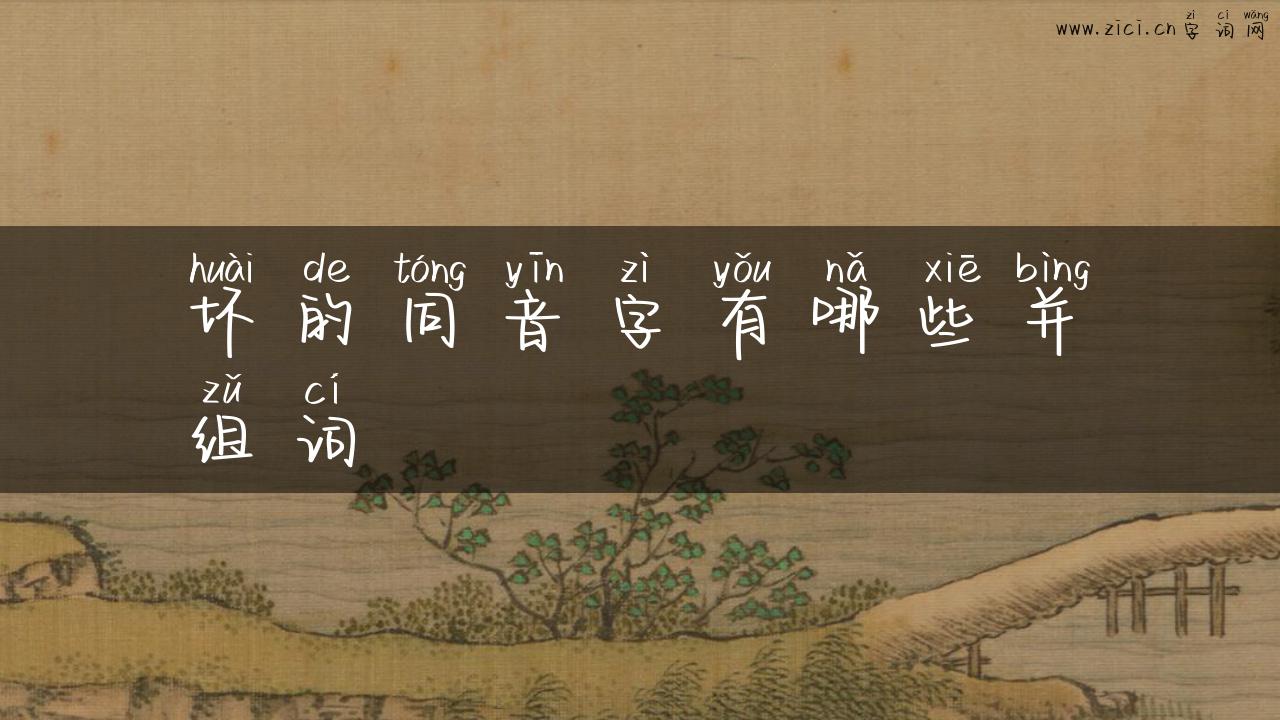 zì cí wǎng
www.zici.cn 字词网
huài de tóng yīn zì yǒu nǎ xiē bìng
坏的同音字有哪些并
zǔ cí
组词